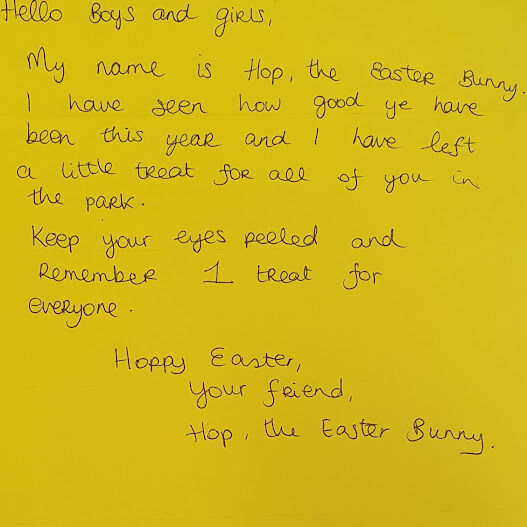 Hello Boys and girls,
My name is Hop, the Easter Bunny.
I have seen how good ye have
been this year and I have left
a little treat for all of you in
the park.
Keep your eyes peeled and
Remember 1 treat for
everyone.
Hoppy Easter,
your friend,
Hop, the Easter Bunny.